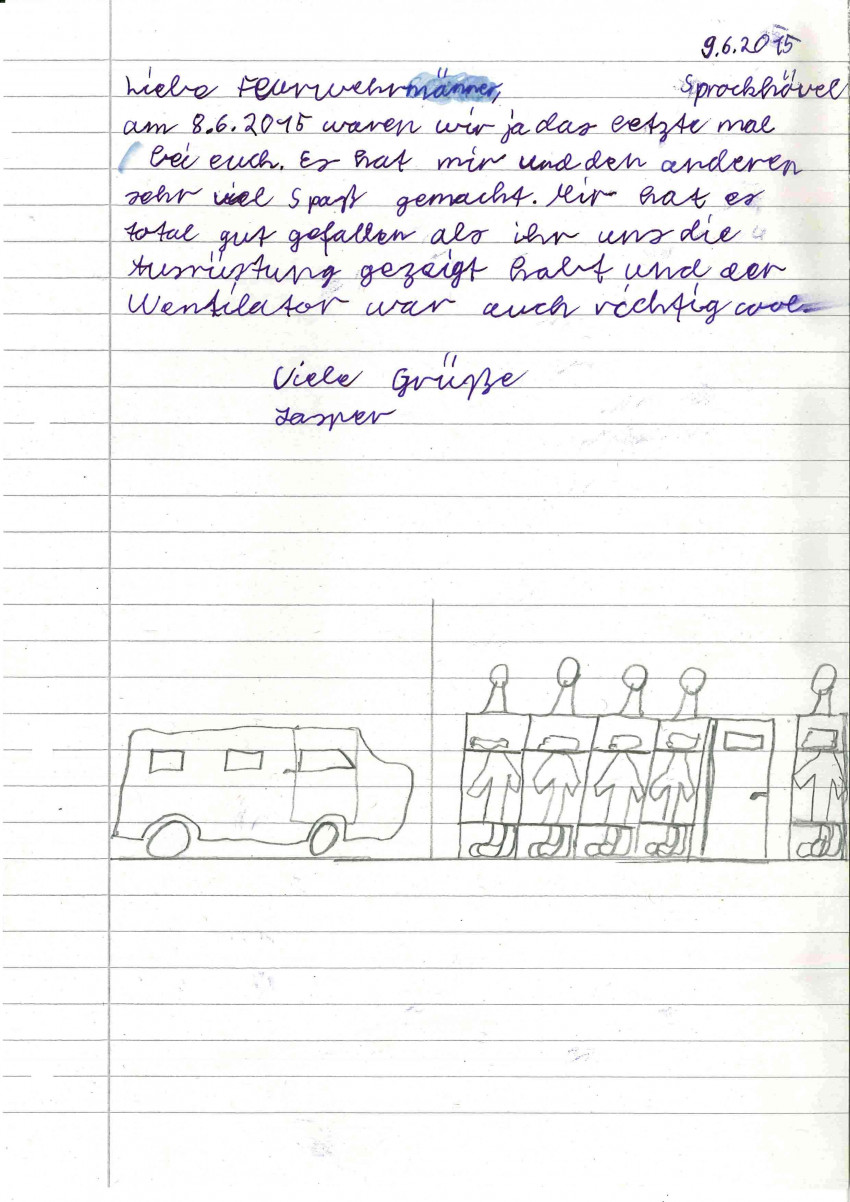 9.6.2015
Liebe Feuerwehrmänner, Sprockhövel
am 8.6.2015 waren wir ja das letzte mal
bei euch. Es hat mir und den anderen
sehr viel Spaß gemacht. Mir hat es
total gut gefallen als ihr uns die
Ausrüstung gezeigt habt und der
Wentilator war auch richtig cool.
Viele Grüße
Jasper